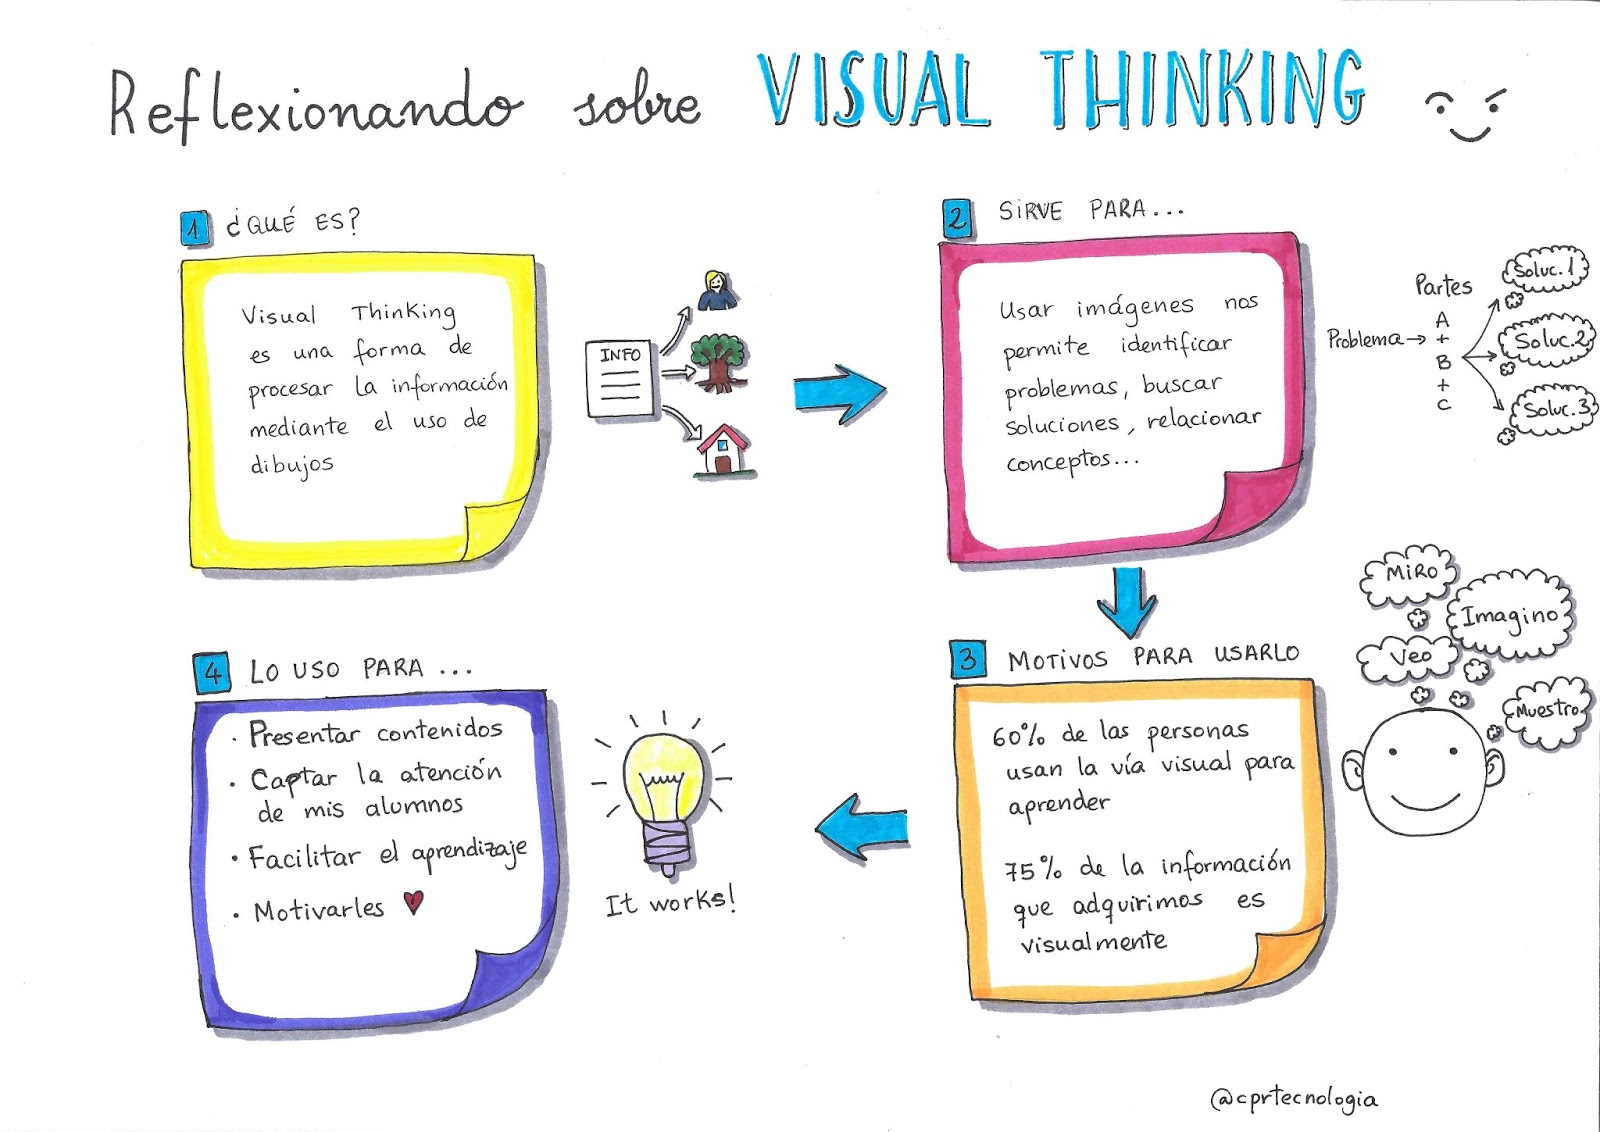 Reflexionando sobre VISUAL THINKING
1 ¿QUÉ ES?
Visual Thinking
es una forma de
procesar la información
mediante el uso de
dibujos
INFO
2 SIRVE PARA...
Usar imágenes nos
permite identificar
problemas, buscar
soluciones, relacionar
conceptos...
Problema
Partes
A
+
B
+
C
Soluc.1
Soluc.2
Soluc.3
3 MOTIVOS PARA USARLO
60% de las personas
usan la vía visual para
aprender
75% de la información
que adquirimos es
visualmente
MIRO
Imagino
Veo
Muestro
4 LO USO PARA ...
· Presentar contenidos
· Captar la atención
de mis alumnos
· Facilitar el aprendizaje
· Motivarles
It works!
@cprtecnologia